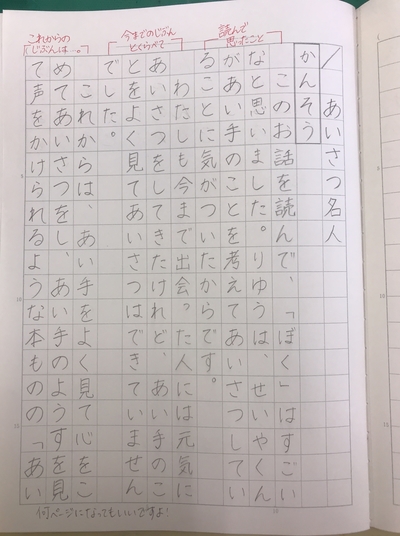 これからの
じぶんは…。
今までのじぶん
とくらべて
読んで
思ったこと
／ あいさつ名人
かんそう
このお話を読んで、「ぼく」はすごい
なと思いました。りゆうは、せいやくん
があい手のことを考えてあいさつしてい
ることに気がついたからです。
わたしも今まで出会った人には元気に
あいさつをしてきたけれど、あい手のこ
とをよく見てあいさつはできていません
でした。
これからは、あい手をよく見て心をこ
めてあいさつをし、あい手のようすを見
て声をかけられるような本ものの「あい
何ページになってもいいですよ！